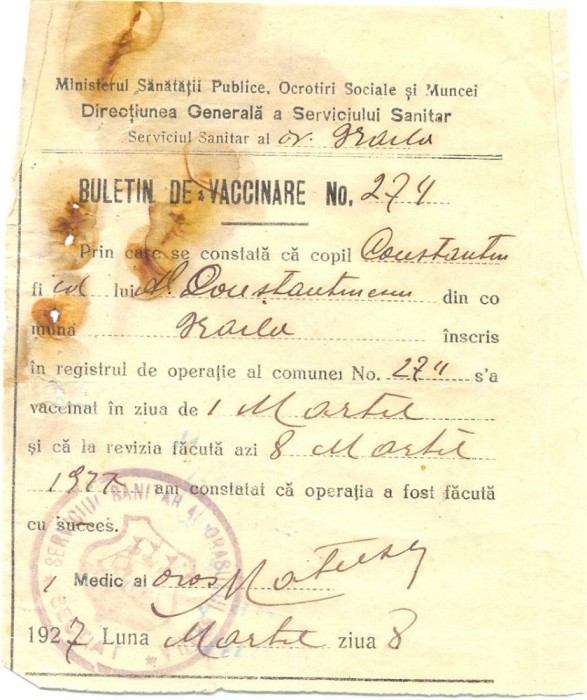 Ministerul Sănătății Publice, Ocrotiri Sociale și Muncei
Direcțiunea Generală a Serviciului Sanitar
Serviciul Sanitar al or. Braila
BULETIN DE VACCINARE No. 274
Prin care se constată că copil Constantin
fi lui Constantinescu din co
mună Braila înscris
în registrul de operație al comunei No. 274 s'a
vaccinat în ziua de 1 Martie
și că la revizia făcută azi 8 Martie
1927 am constatat că operația a fost făcută
cu succes.
Medic al oras
1927 Luna Martie ziua 8
SERVICIUL SANITAR AL ORAȘULUI